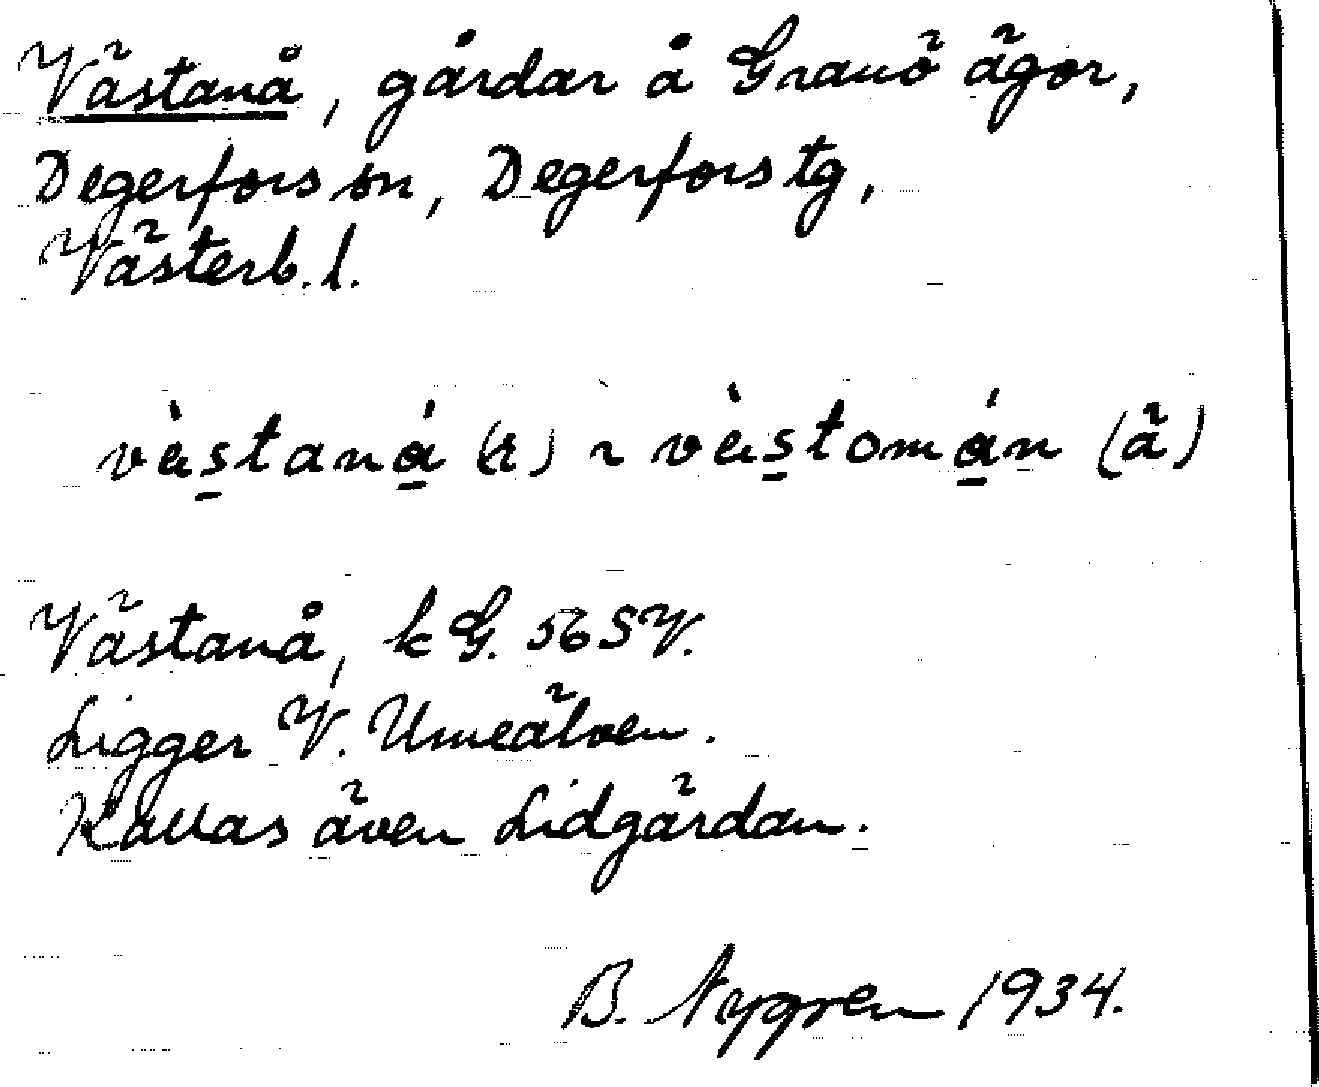 Västanå, gårdar å Granö ägor,
Degerfors sn, Degerfors tg,
Västerb. l.
Västanå, k G. 56 SV.
Ligger V. Umeälven.
Kallas även Lidgårdan.
B. Nygren 1934.